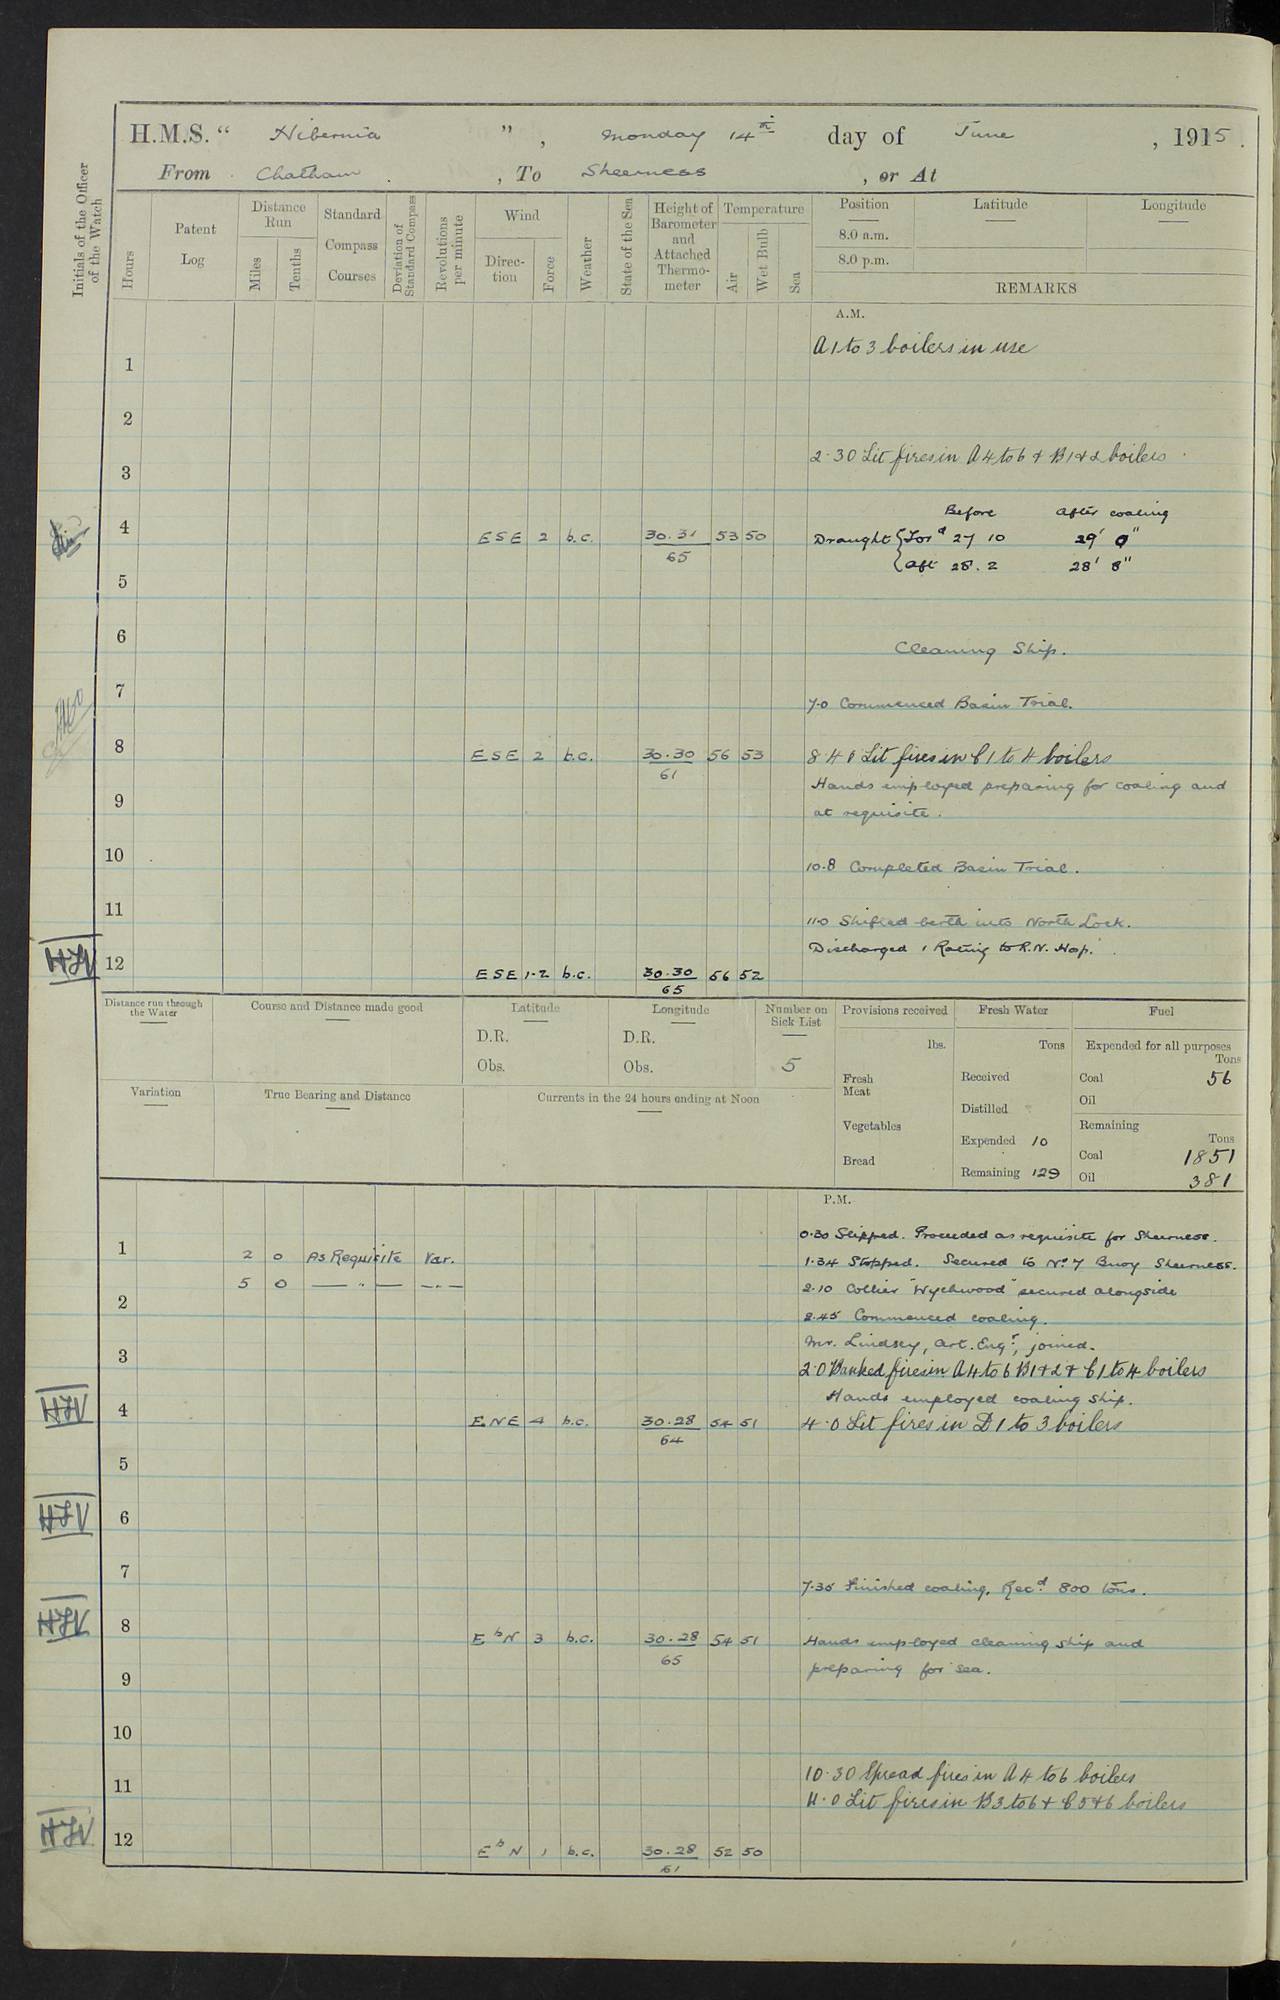 H.M.S. “ Hibernia ” , Monday 14th day of June , 1915 .
From Chatham . , To Sheerness , or At
Initials of the Officer of the Watch
Hours
Patent Log
Distance Run
Miles
Tenths
Standard Compass Courses
Deviation of Standard Compass
Revolutions per minute
Wind
Direction
Force
Weather
State of the Sea
Height of Barometer and Attached Thermometer
Temperature
Air
Wet Bulb
Sea
Position
8.0 a.m.
8.0 p.m.
Latitude
Longitude
REMARKS
A.M.
A 1 to 3 boilers in use
1
2
2.30 Lit fires in A 4 to 6 & B 1 & 2 boilers
3
Before After coaling
4 ESE 2 b.c. 30.31 53 50 Draught { For'd 27 10 29' 0"
65 { Aft 28. 2 28' 8"
5
6
Cleaning Ship.
7
7.0 Commenced Basin Trial.
8 ESE 2 b.c. 30.30 56 53 8.40 Lit fires in C 1 to 4 boilers
61
Hands employed preparing for coaling and
9
as requisite.
10
10.8 Completed Basin Trial.
11
11.0 Shifted berth into North Lock.
Discharged 1 Rating to R.N. Hop.
HJV 12 ESE 1-2 b.c. 30.30 56 52
65
Distance run through the Water
Course and Distance made good
Latitude
D.R.
Obs.
Longitude
D.R.
Obs.
Number on Sick List
5
Provisions received
lbs.
Fresh Meat
Vegetables
Bread
Fresh Water
Tons
Received
Distilled
Expended 10
Remaining 129
Fuel
Expended for all purposes
Tons
Coal 56
Oil
Remaining
Tons
Coal 1851
Oil 381
Variation
True Bearing and Distance
Currents in the 24 hours ending at Noon
P.M.
0.30 Slipped. Proceeded as requisite for Sheerness.
1 2 0 As Requisite Var. 1.34 Stopped. Secured to No 7 Buoy Sheerness.
5 0 — " — — " — 2.10 Collier "Wychwood" secured alongside
2
2.45 Commenced coaling.
Mr. Lindsey, Art. Engr, joined.
3
2.0 Banked fires in A 4 to 6 B 1 & 2 & C 1 to 4 boilers
Hands employed coaling ship.
HJV 4 ENE 4 b.c. 30.28 54 51 4.0 Lit fires in D 1 to 3 boilers
64
5
HJV 6
7
7.35 Finished coaling. Recd 800 tons.
HJV 8 E b N 3 b.c. 30.28 54 51 Hands employed cleaning ship and
65 preparing for sea.
9
10
10.30 Spread fires in A 4 to 6 boilers
11
11.0 Lit fires in B 3 to 6 & C 5 & 6 boilers
HJV 12 E b N 1 b.c. 30.28 52 50
61